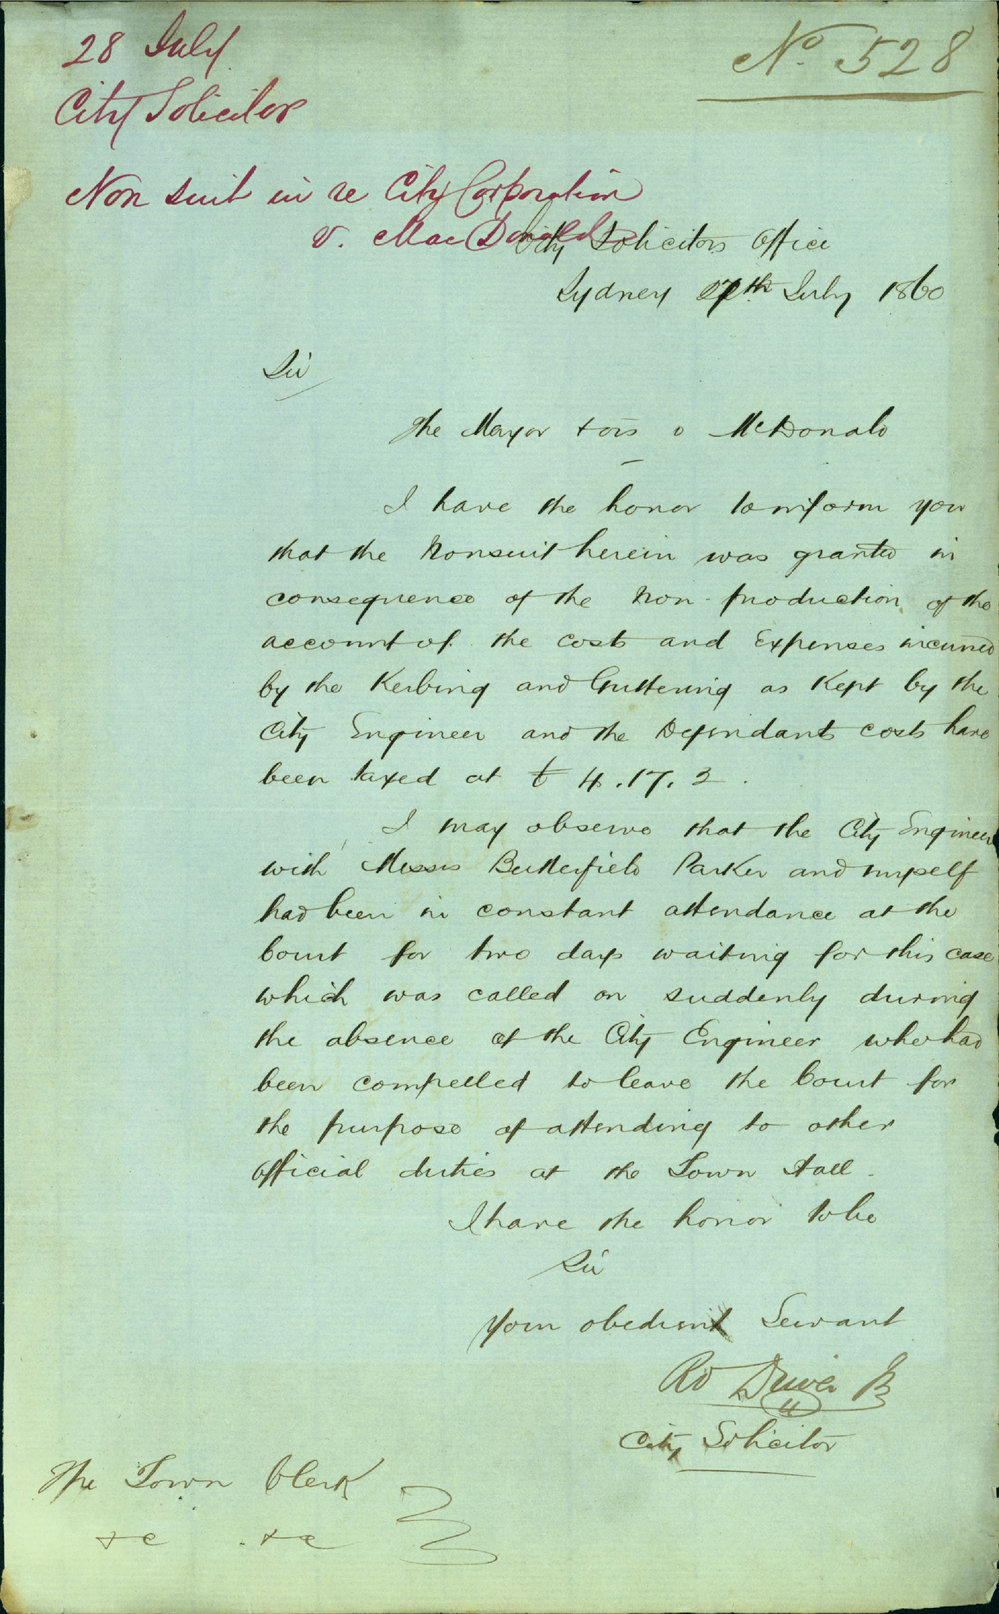 28 July
No. 528
City Solicitor
Non suit in re City Corporation
v. MacDonald
City Solicitors Office
Sydney 27th July 1860
Sir
The Mayor &ors v McDonald
I have the honor to inform you
that the Nonsuit herein was granted in
consequence of the Non-production of the
account of the costs and Expenses incurred
by the Kerbing and Guttering as Kept by the
City Engineer and the Defendants costs have
been taxed at £ 4.17.2.
I may observe that the City Engineer
with Messrs Butterfield Parker and myself
had been in constant attendance at the
Court for two days waiting for this case
which was called on suddenly during
the absence of the City Engineer who had
been compelled to leave the Court for
the purpose of attending to other
official duties at the Town Hall.
I have the honor to be
Sir
Your obedient Servant
Rd Driver Jr
City Solicitor
The Town Clerk
&c &c